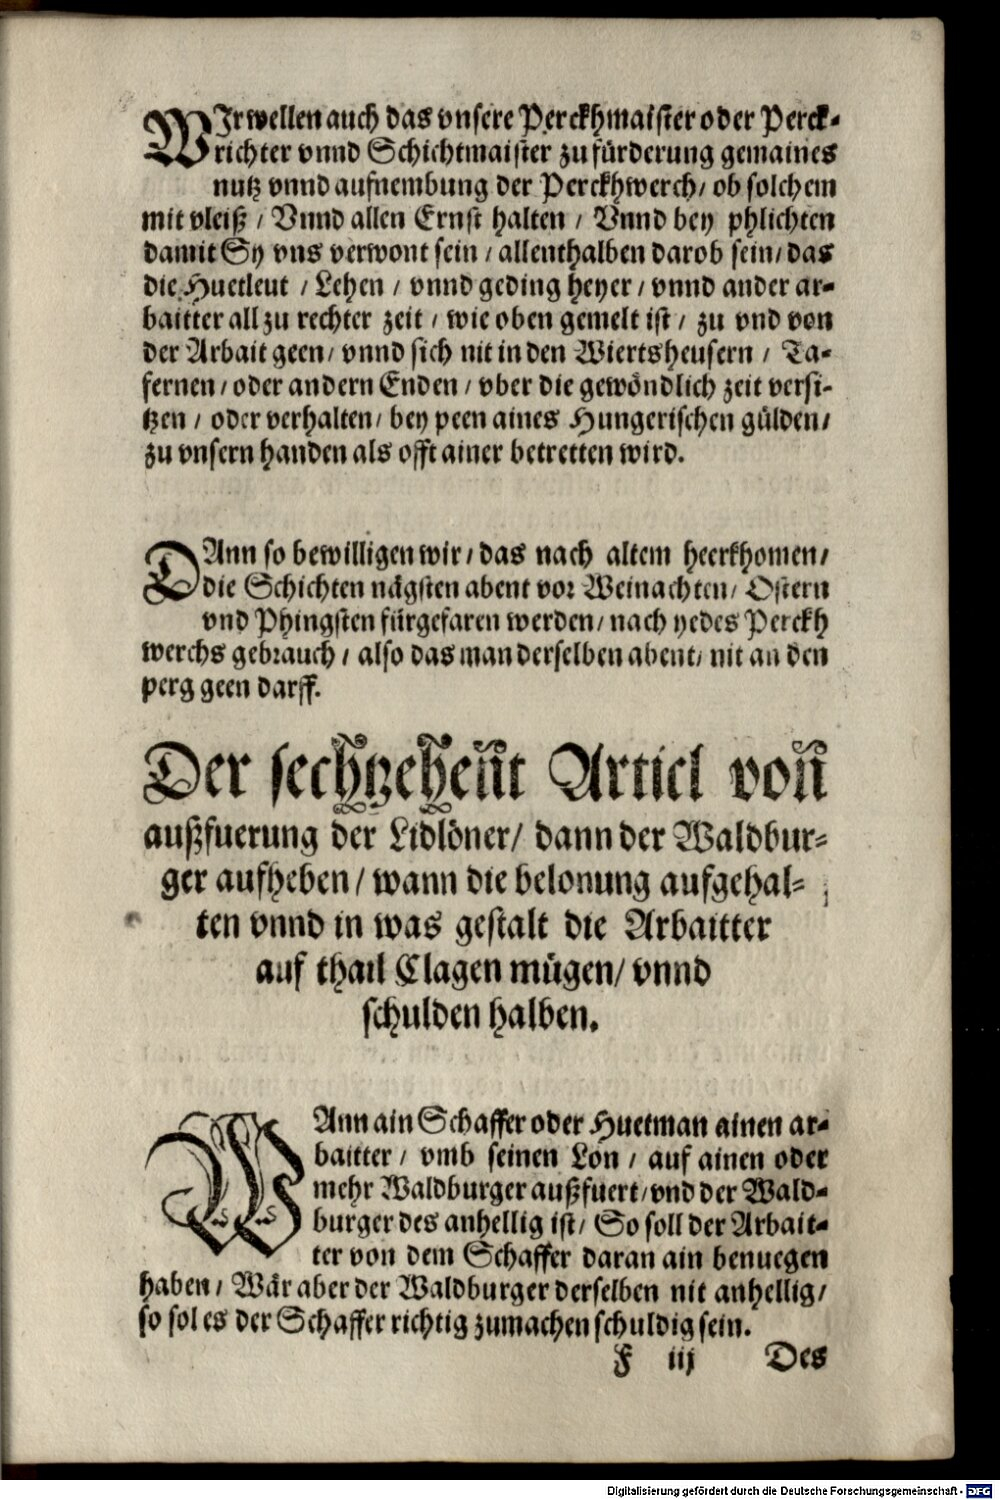 WJr wellen auch das vnsere Perckhmaister oder Perck-
richter vnnd Schichtmaister zu fürderung gemaines
nutz vnnd aufnembung der Perckhwerch/ ob solchem
mit vleiß / Vnnd allen Ernst halten / Vnnd bey phlichten
damit Sy vns verwont sein / allenthalben darob sein/ das
die Huetleut / Lehen / vnnd geding heyer / vnnd ander ar-
baitter all zu rechter zeit / wie oben gemelt ist / zu vnd von
der Arbait geen/ vnnd sich nit in den Wiertsheusern / Ta-
fernen / oder andern Enden / vber die gewöndlich zeit versi-
tzen / oder verhalten/ bey peen aines Hungerischen gülden/
zu vnsern handen als offt ainer betretten wird.
DAnn so bewilligen wir / das nach altem heerkhomen/
die Schichten nägsten abent vor Weinachten/ Ostern
vnd Phingsten fürgefaren werden/ nach yedes Perckh
werchs gebrauch / also das man derselben abent/ nit an den
perg geen darff.
Der sechtzehent Articl von
außfuerung der Lidlöner/ dann der Waldbur-
ger aufheben/ wann die belonung aufgehal-
ten vnnd in was gestalt die Arbaitter
auf thail Clagen mügen/ vnnd
schulden halben.
WAnn ain Schaffer oder Huetman ainen ar-
baitter / vmb seinen Lon / auf ainen oder
mehr Waldburger außfuert/ vnd der Wald-
burger des anhellig ist/ So soll der Arbait-
ter von dem Schaffer daran ain benuegen
haben / Wär aber der Waldburger derselben nit anhellig/
so sol es der Schaffer richtig zumachen schuldig sein.
F iij Des
Digitalisierung gefördert durch die Deutsche Forschungsgemeinschaft - DFG